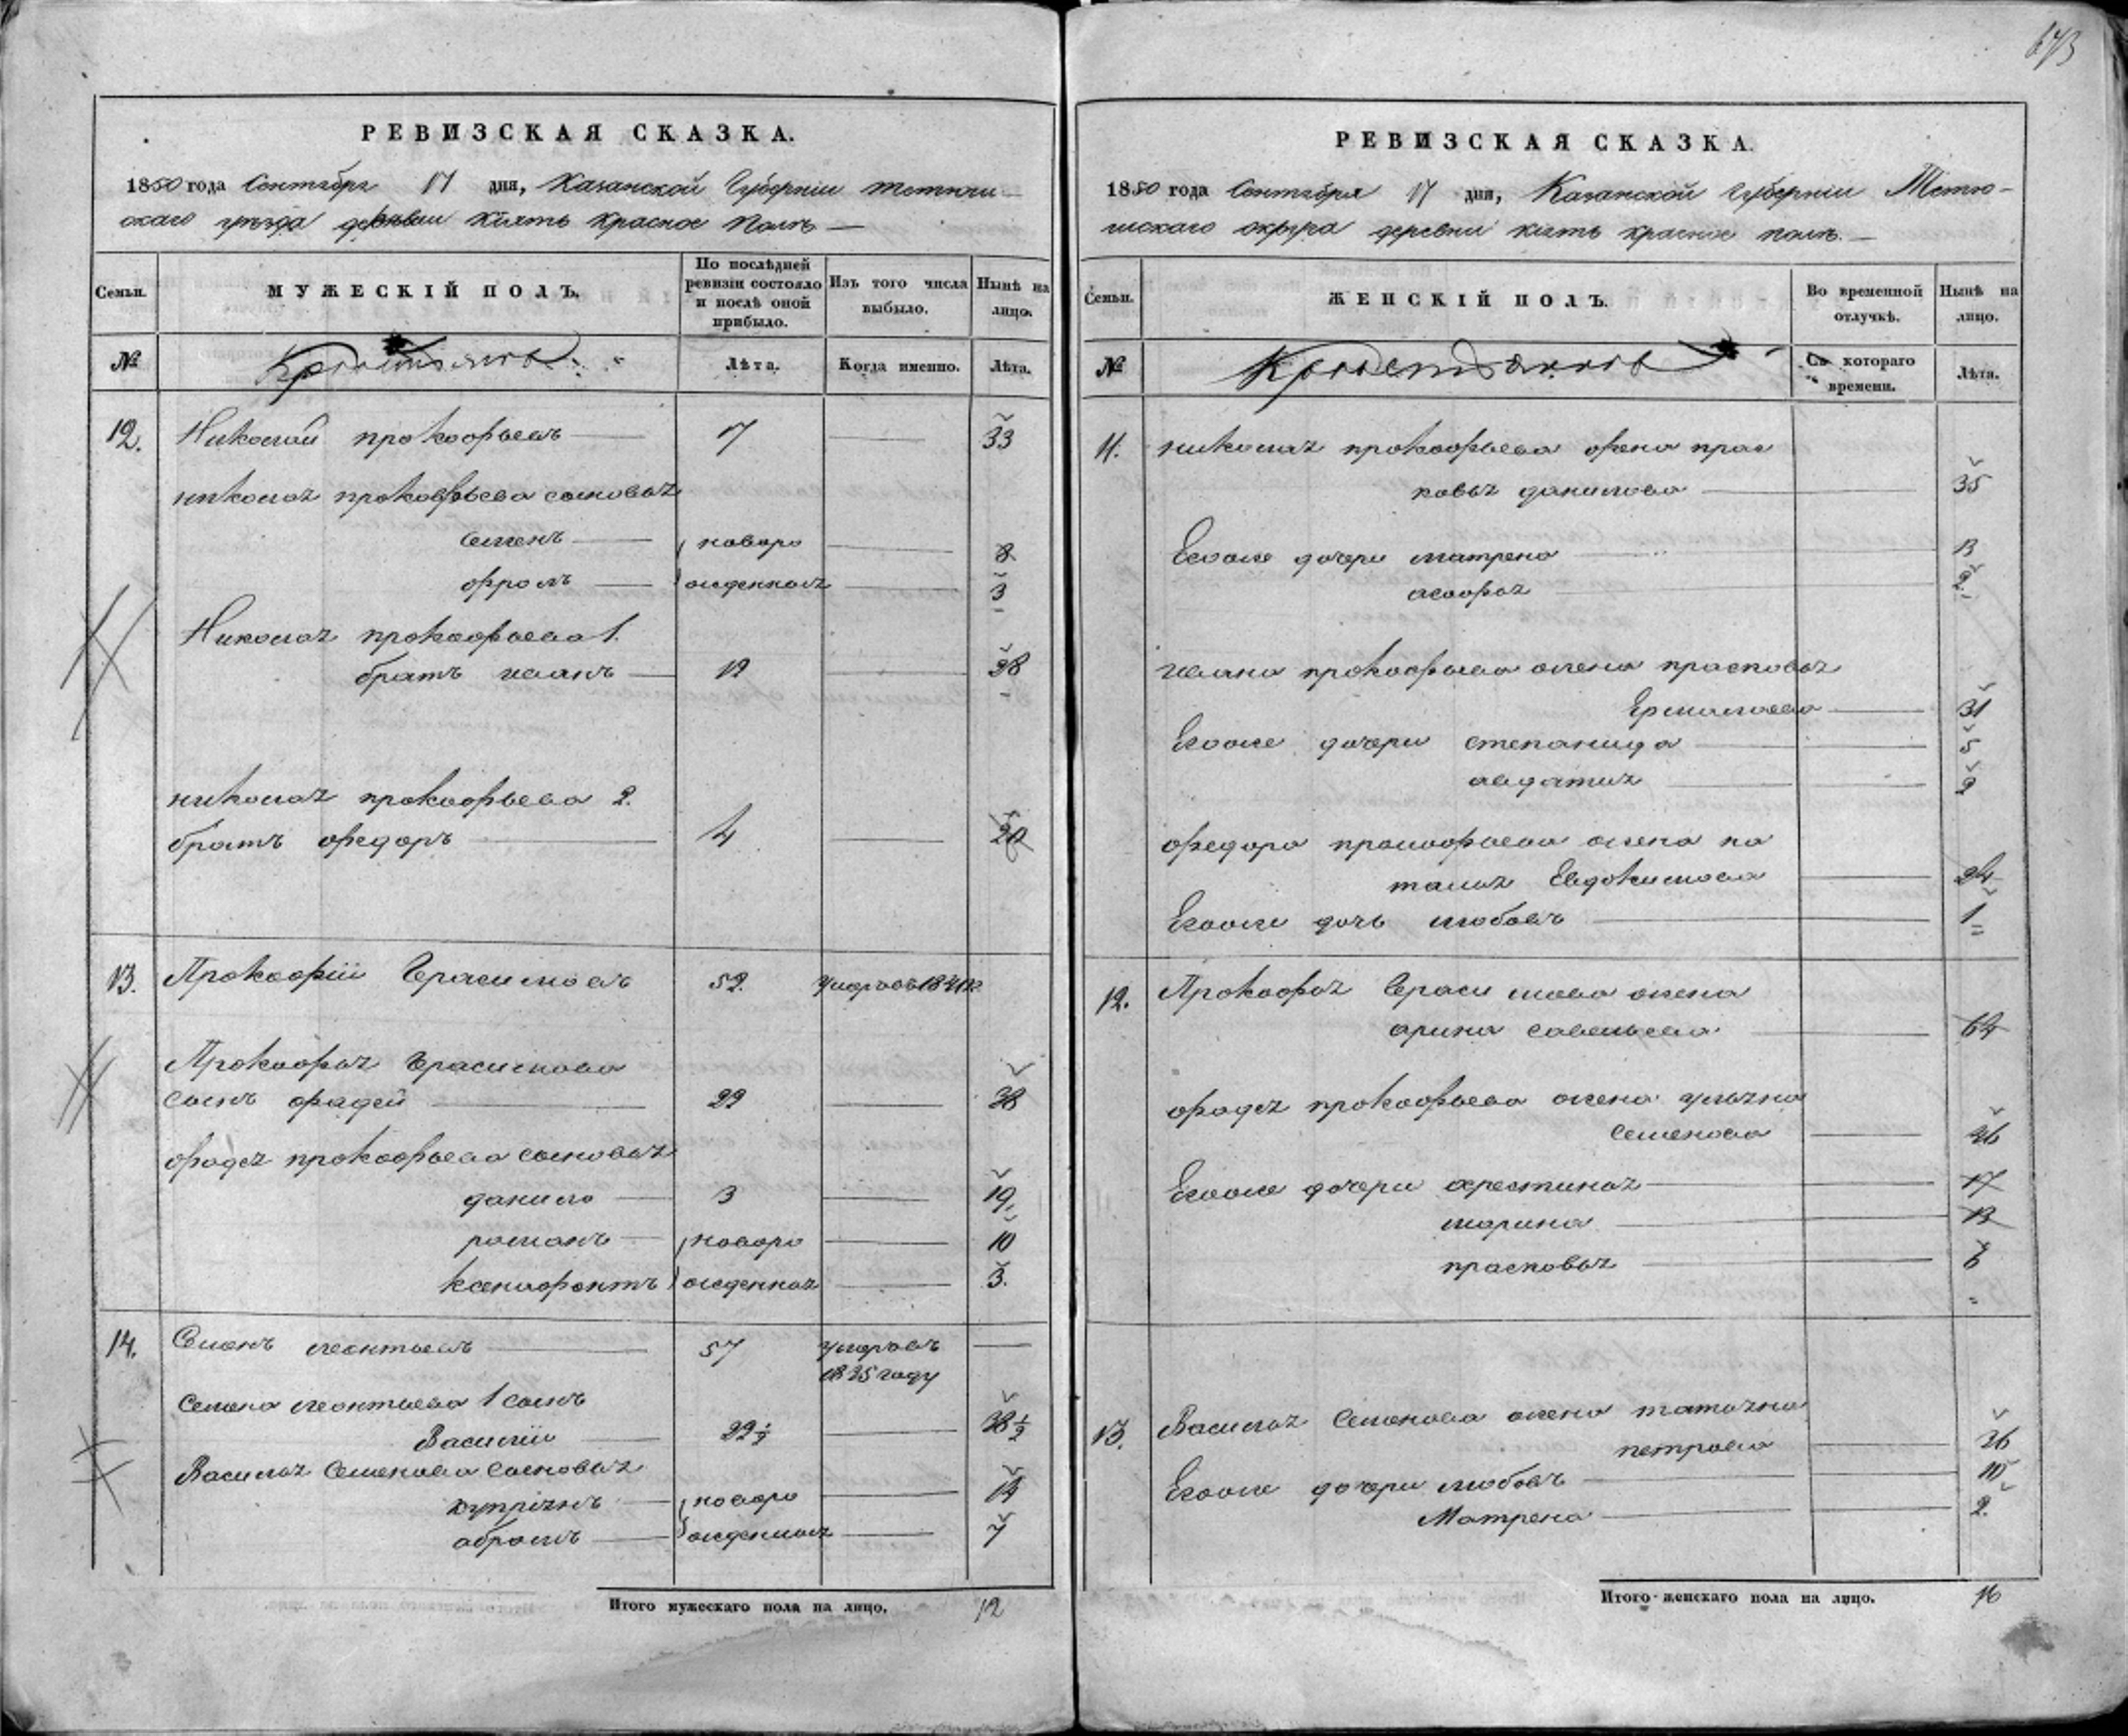 673
РЕВИЗСКАЯ СКАЗКА.
1850 года Сентября 17 дня, Казанской Губерніи тетюш-
скаго уезда деревни Кіять Красное Поль
Семьи.
МУЖЕСКІЙ ПОЛЪ.
По послѣдней ревизіи состояло и послѣ оной прибыло.
Изъ того числа выбыло.
Нынѣ на лицо.
№
Лѣта.
Когда именно.
Лѣта.
12. Николай прокофьевъ 17 33
николая прокофьева сыновья
семенъ новоро 8
фролъ жденныя 3
Николая прокофьева 1.
братъ иванъ 12 28
николая прокофьева 2.
братъ федоръ 4 20
13. Прокофій Герасимовъ 52. умеръ въ
Прокофья Герасимова
сынъ фадей 22 38
фадея прокофьева сыновья
данило 3 19
романъ новоро 10
ксенофонтъ жденныя 3.
14. Семенъ леонтьевъ 57 умеръ въ
1835 году
Семена леонтьева 1 сынъ
Василій 22 1/2 38 1/2
Василья Семенова сыновья
купріянъ новоро 14
абрамъ жденныя 7
Итого мужескаго пола на лицо. 12
РЕВИЗСКАЯ СКАЗКА.
1850 года Сентября 17 дня, Казанской Губерніи Тетю-
шскаго округа деревни кіять красное поль.
Семьи.
ЖЕНСКІЙ ПОЛЪ.
Во временной отлучкѣ.
Нынѣ на лицо.
№
Съ котораго времени.
Лѣта.
11. николая прокофьева жена прас
ковья данилова 35
Егоже дочери матрена 13
агафья 2
ивана прокофьева жена прасковья
Ермолаева 31
Егоже дочери степанида 5
авдатья 2
федора прокофьева жена на
талья Евдокимова 24
Егоже дочь любовь 1
12. Прокофья Герасимова жена
арина савельева 64
фадея прокофьева жена ульяна
семенова 36
Егоже дочери 17
марина 13
прасковья 6
13. Василья Семенова жена татьяна
петрова 36
Егоже дочери любовь 10
Матрена 2.
Итого женскаго пола на лицо. 16